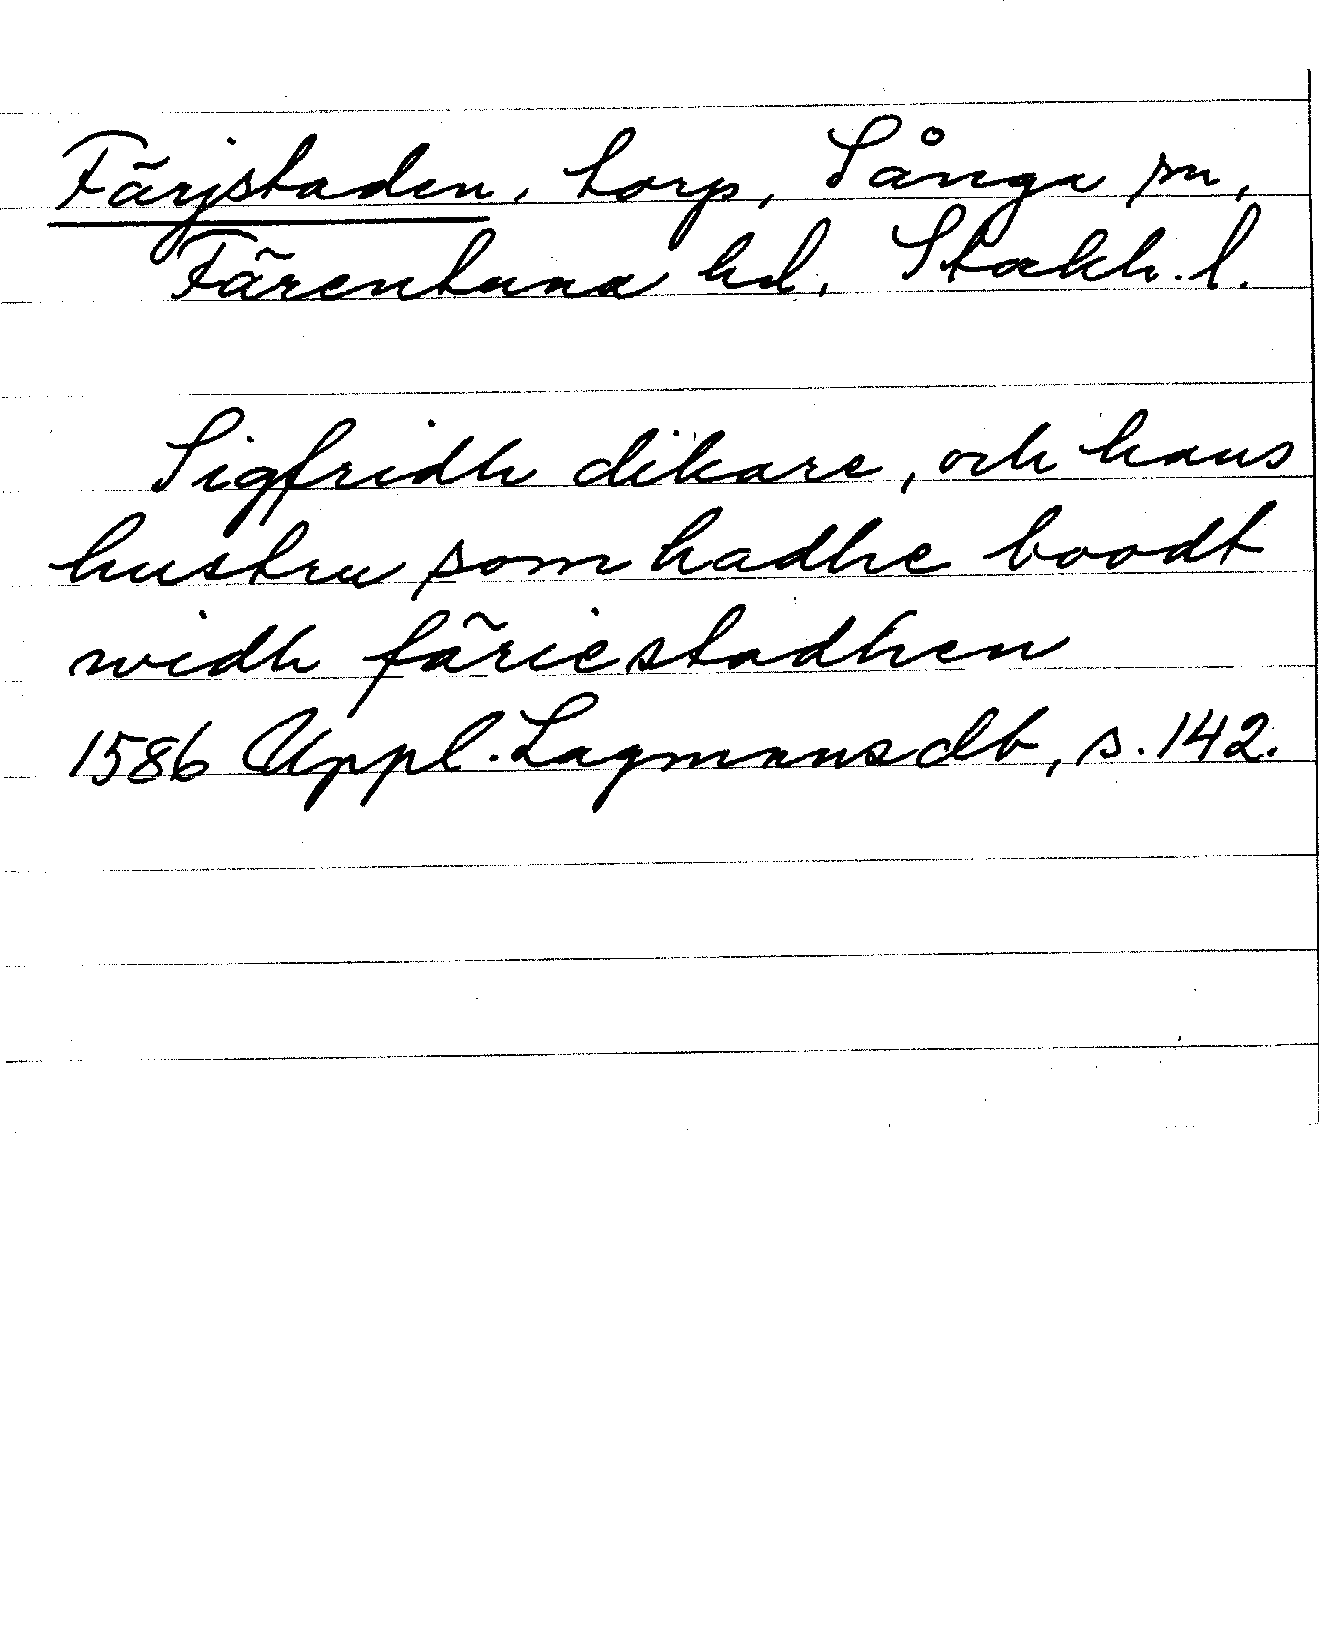 Färjstaden, torp, Sånga sn,
Färentuna hd, Stockh. l.
Sigfridh dikare, och hans
hustru som hadhe boodt
widh färiestadhen
1586 Uppl. Lagmansdb, s. 142.